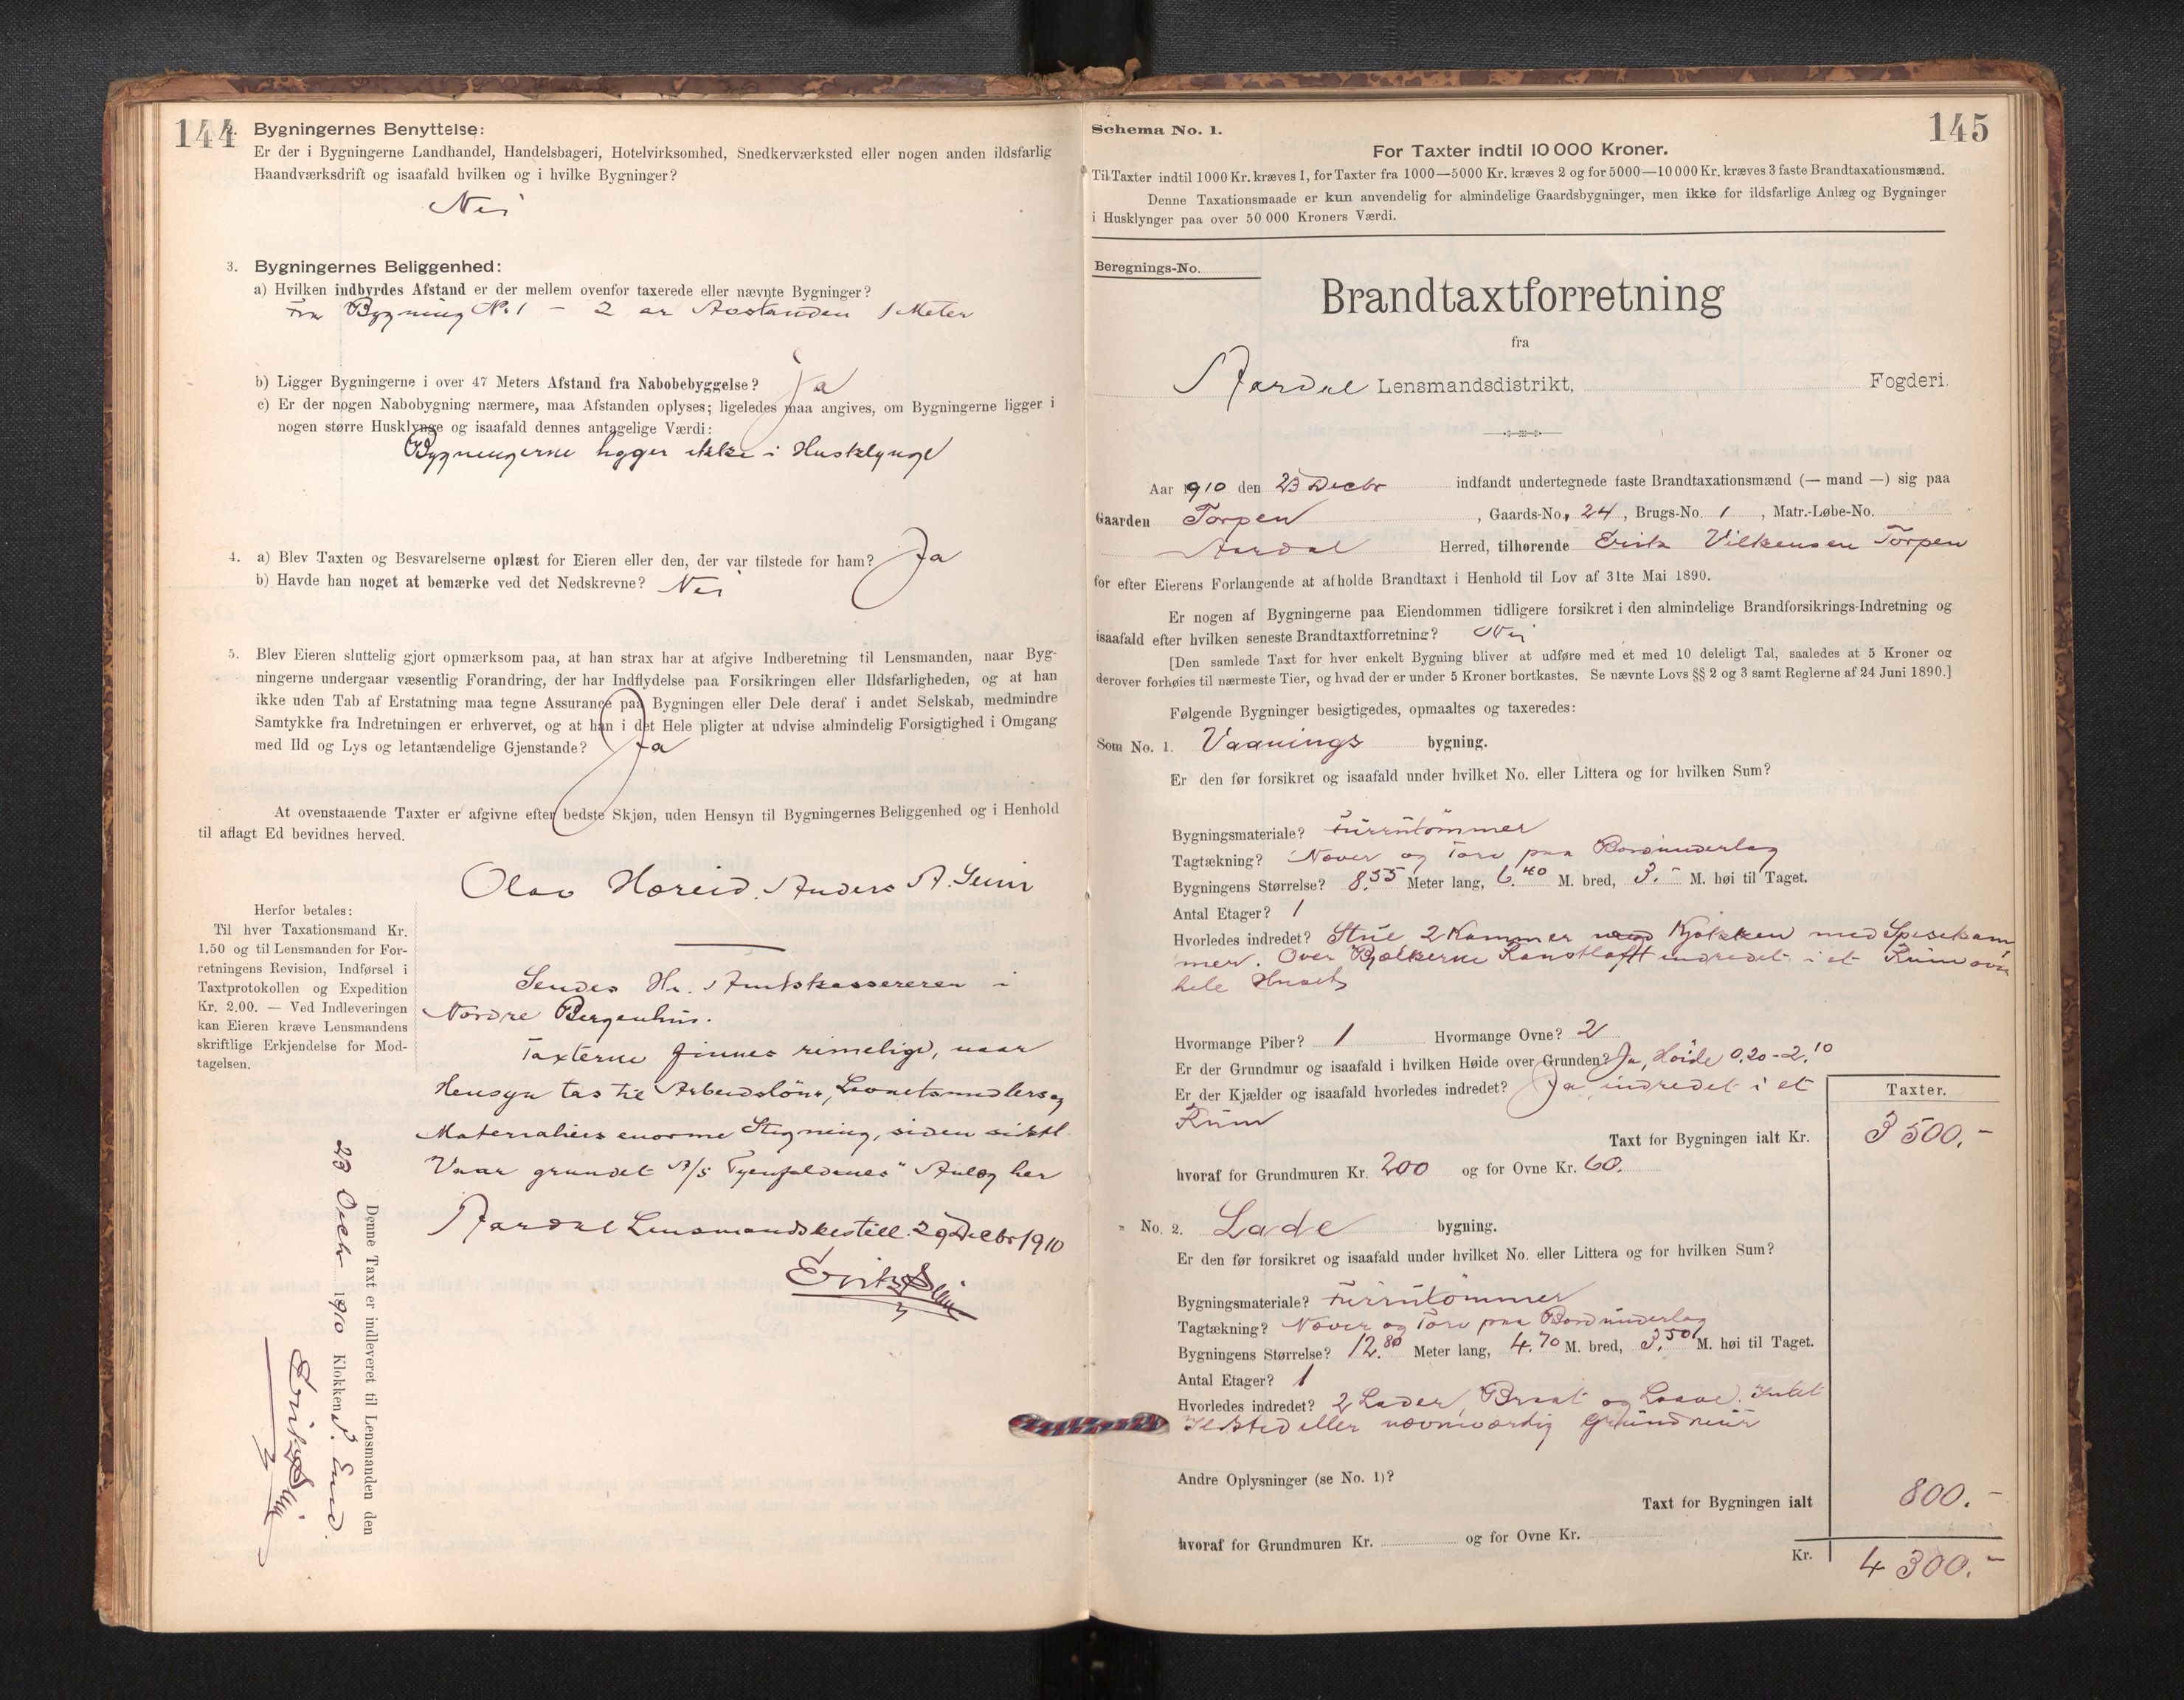 144
2. Bygningernes Benyttelse:
Er der i Bygningerne Landhandel, Handelsbageri, Hotelvirksomhed, Snedkerværksted eller nogen anden ildsfarlig
Haandværksdrift og isaafald hvilken og i hvilke Bygninger?
Nei
3. Bygningernes Beliggenhed:
a) Hvilken indbyrdes Afstand er der mellem ovenfor taxerede eller nævnte Bygninger?
Fra Bygning No. 1 - 2 er Avstanden 1 Meter
b) Ligger Bygningerne i over 47 Meters Afstand fra Nabobebyggelse? Ja
c) Er der nogen Nabobygning nærmere, maa Afstanden oplyses; ligeledes maa angives, om Bygningerne ligger i
nogen større Husklynge og isaafald dennes antagelige Værdi:
Bygningerne ligger ikke i Husklynge
4. a) Blev Taxten og Besvarelserne oplæst for Eieren eller den, der var tilstede for ham? Ja
b) Havde han noget at bemærke ved det Nedskrevne? Nei
5. Blev Eieren sluttelig gjort opmærksom paa, at han strax har at afgive Indberetning til Lensmanden, naar Byg-
ningerne undergaar væsentlig Forandring, der har Indflydelse paa Forsikringen eller Ildsfarligheden, og at han
ikke uden Tab af Erstatning maa tegne Assurance paa Bygningen eller Dele deraf i andet Selskab, medmindre
Samtykke fra Indretningen er erhvervet, og at han i det Hele pligter at udvise almindelig Forsigtighed i Omgang
med Ild og Lys og letantændelige Gjenstande? Ja
At ovenstaaende Taxter er afgivne efter bedste Skjøn, uden Hensyn til Bygningernes Beliggenhed og i Henhold
til aflagt Ed bevidnes herved.
Olav Horeid. Anders A.
Herfor betales:
Til hver Taxationsmand Kr.
1.50 og til Lensmanden for For-
retningens Revision, Indførsel i
Taxtprotokollen og Expedition
Kr. 2.00. — Ved Indleveringen
kan Eieren kræve Lensmandens
skriftlige Erkjendelse for Mod-
tagelsen.
Sendes Hr. Amtskassereren i
Nordre Bergenhus.
Taxterne finnes rimelige, naar
Hensyn tas til Arbeidsløns, Levnetsmidlers og
Materialiers enorme Stigning, siden sidstl.
Vaar grundet A/S Tyenfaldenes" Anlæg her
Aardal Lensmandsbestill. 29 Decbr 1910
Denne Taxt er indleveret til Lensmanden den
23 Decbr 1910 Klokken
145
Schema No. 1.
For Taxter indtil 10 000 Kroner.
Til Taxter indtil 1000 Kr. kræves 1, for Taxter fra 1000—5000 Kr. kræves 2 og for 5000—10 000 Kr. kræves 3 faste Brandtaxationsmænd.
Denne Taxationsmaade er kun anvendelig for almindelige Gaardsbygninger, men ikke for ildsfarlige Anlæg og Bygninger
i Husklynger paa over 50 000 Kroners Værdi.
Beregnings-No.
Brandtaxtforretning
fra
Aardal Lensmandsdistrikt, Fogderi.
Aar 1910 den 23 Decbr indfandt undertegnede faste Brandtaxationsmænd (— mand —) sig paa
Gaarden Torpen, Gaards-No. 24, Brugs-No. 1, Matr.-Løbe-No.
Aardal Herred, tilhørende Erik Vilhemsen Torpen
for efter Eierens Forlangende at afholde Brandtaxt i Henhold til Lov af 31te Mai 1890.
Er nogen af Bygningerne paa Eiendommen tidligere forsikret i den almindelige Brandforsikrings-Indretning og
isaafald efter hvilken seneste Brandtaxtforretning? Nei
[Den samlede Taxt for hver enkelt Bygning bliver at udføre med et med 10 deleligt Tal, saaledes at 5 Kroner og
derover forhøies til nærmeste Tier, og hvad der er under 5 Kroner bortkastes. Se nævnte Lovs §§ 2 og 3 samt Reglerne af 24 Juni 1890.]
Følgende Bygninger besigtigedes, opmaaltes og taxeredes:
Som No. 1. Vaanings bygning.
Er den før forsikret og isaafald under hvilket No. eller Littera og for hvilken Sum?
Bygningsmateriale? Furutømmer
Tagtækning? Næver og Torv paa Bordunderlag
Bygningens Størrelse? 8.55 Meter lang, 6.40 M. bred, 3.- M. høi til Taget.
Antal Etager? 1
Hvorledes indredet? Stue 2 Kammer Kjøkken med Spisekam
mer. Over Bjælkerne Ramsloft indredet i et Rum over
hele Huset
Hvormange Piber? 1 Hvormange Ovne? 2
Er der Grundmur og isaafald i hvilken Høide over Grunden? Ja, Høide 0.20-2.10
Er der Kjælder og isaafald hvorledes indredet? Ja indredet i et
Rum
Taxter.
Taxt for Bygningen ialt Kr. 3500.-
hvoraf for Grundmuren Kr. 200 og for Ovne Kr. 60.
" No. 2. Lade bygning.
Er den før forsikret og isaafald under hvilket No. eller Littera og for hvilken Sum?
Bygningsmateriale? Furutømmer
Tagtækning? Næver og Torv paa Bordunderlag
Bygningens Størrelse? 12.80 Meter lang, 4.70 M. bred, 3.50 M. høi til Taget.
Antal Etager? 1
Hvorledes indredet? 2 Lader, og Laave. Intet
Ildsted eller nævneværdig Grundmur
Andre Oplysninger (se No. 1)?
Taxt for Bygningen ialt 800.-
hvoraf for Grundmuren Kr. og for Ovne Kr.
Kr. 4300.-